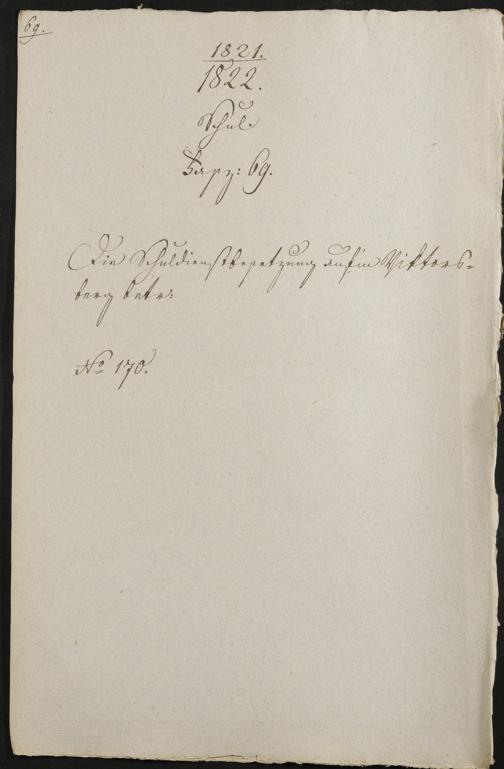 69.
1821.
1822.
Schul.
Fasz: 69.
Die Schuldienstbesetzung auf'm Viktors-
berg betr:
No 170.